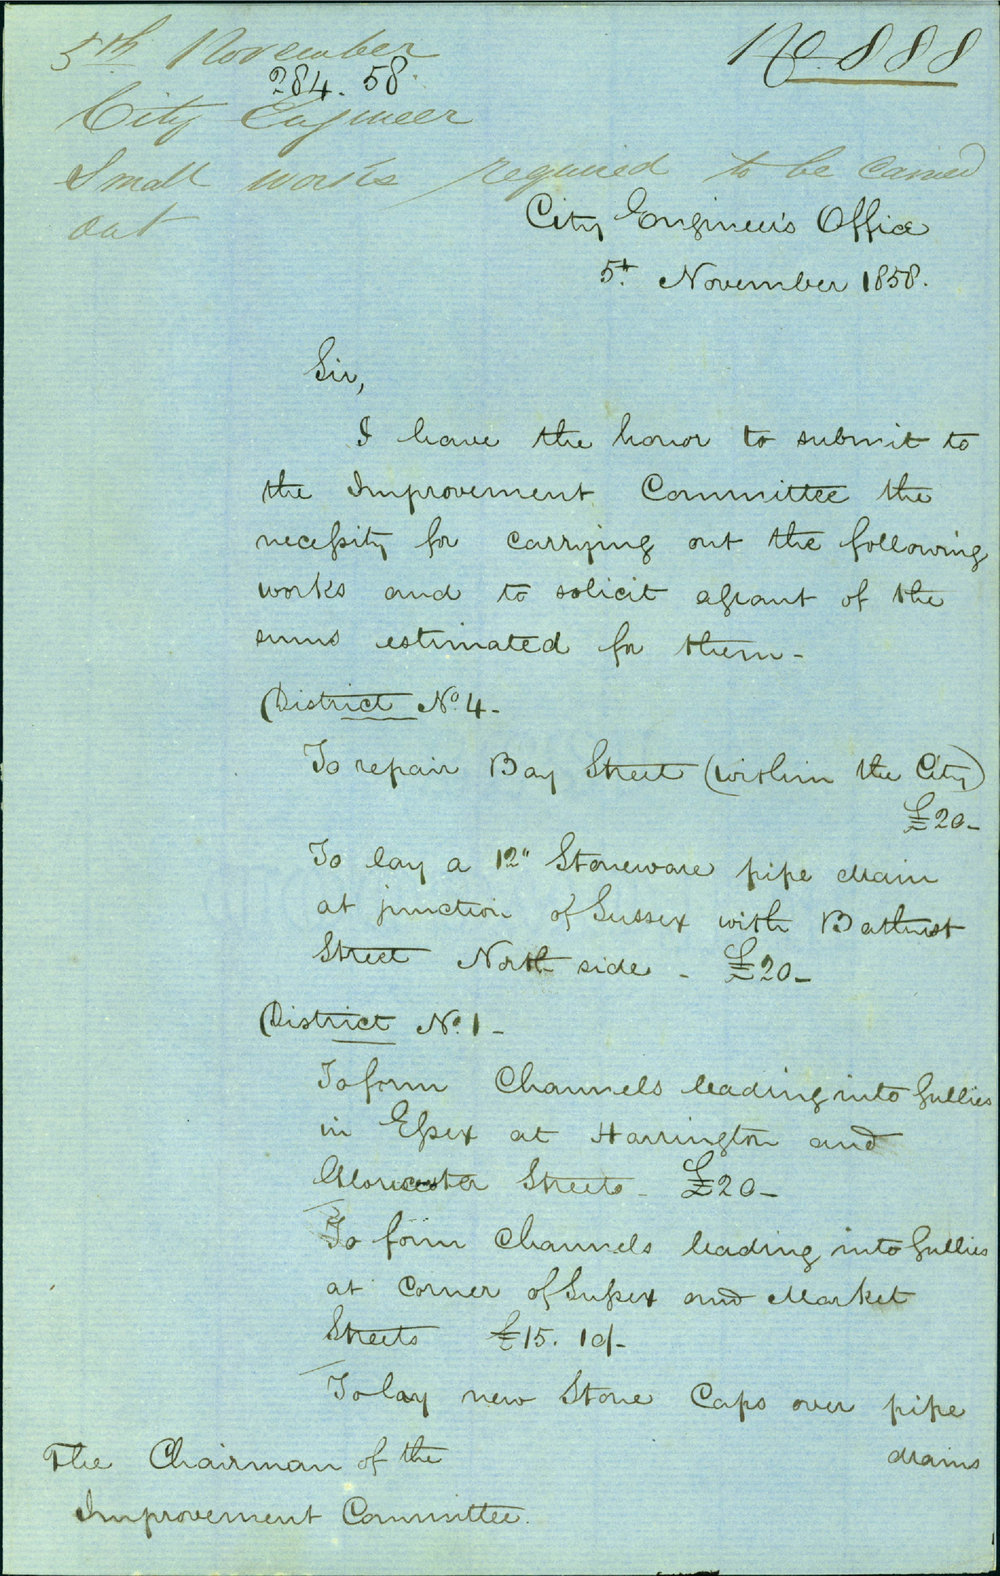 5th November
No. 888
284. 58.
City Engineer
Small works required to be carried
out
City Engineer's Office
5th November 1858.
Sir,
I have the honor to submit to
the Improvement Committee the
neceſsity for carrying out the following
works and to solicit a grant of the
sums estimated for them -
District No. 4 -
To repair Bay Street (within the City)
£20 -
To lay a 12" Stoneware pipe drain
at junction of Sussex with Bathurst
Street North side - £20 -
District No. 1 -
To form Channels leading into Gullies
in Eſsex at Harrington and
Gloucester Streets - £20 -
To form Channels leading into Gullies
at Corner of Suſsex and Market
Streets £15. 10/-
To lay new Stone Caps over pipe
drains
The Chairman of the
Improvement Committee.